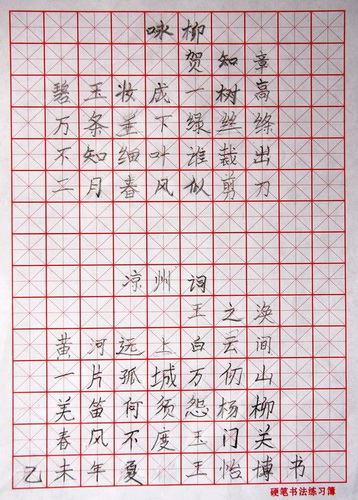 咏柳
贺知章
碧玉妆成一树高
万条垂下绿丝绦
不知细叶谁裁出
二月春风似剪刀
凉州词
王之涣
黄河远上白云间
一片孤城万仞山
羌笛何须怨杨柳
春风不度玉门关
乙未年夏 王怡博书
硬笔书法练习簿